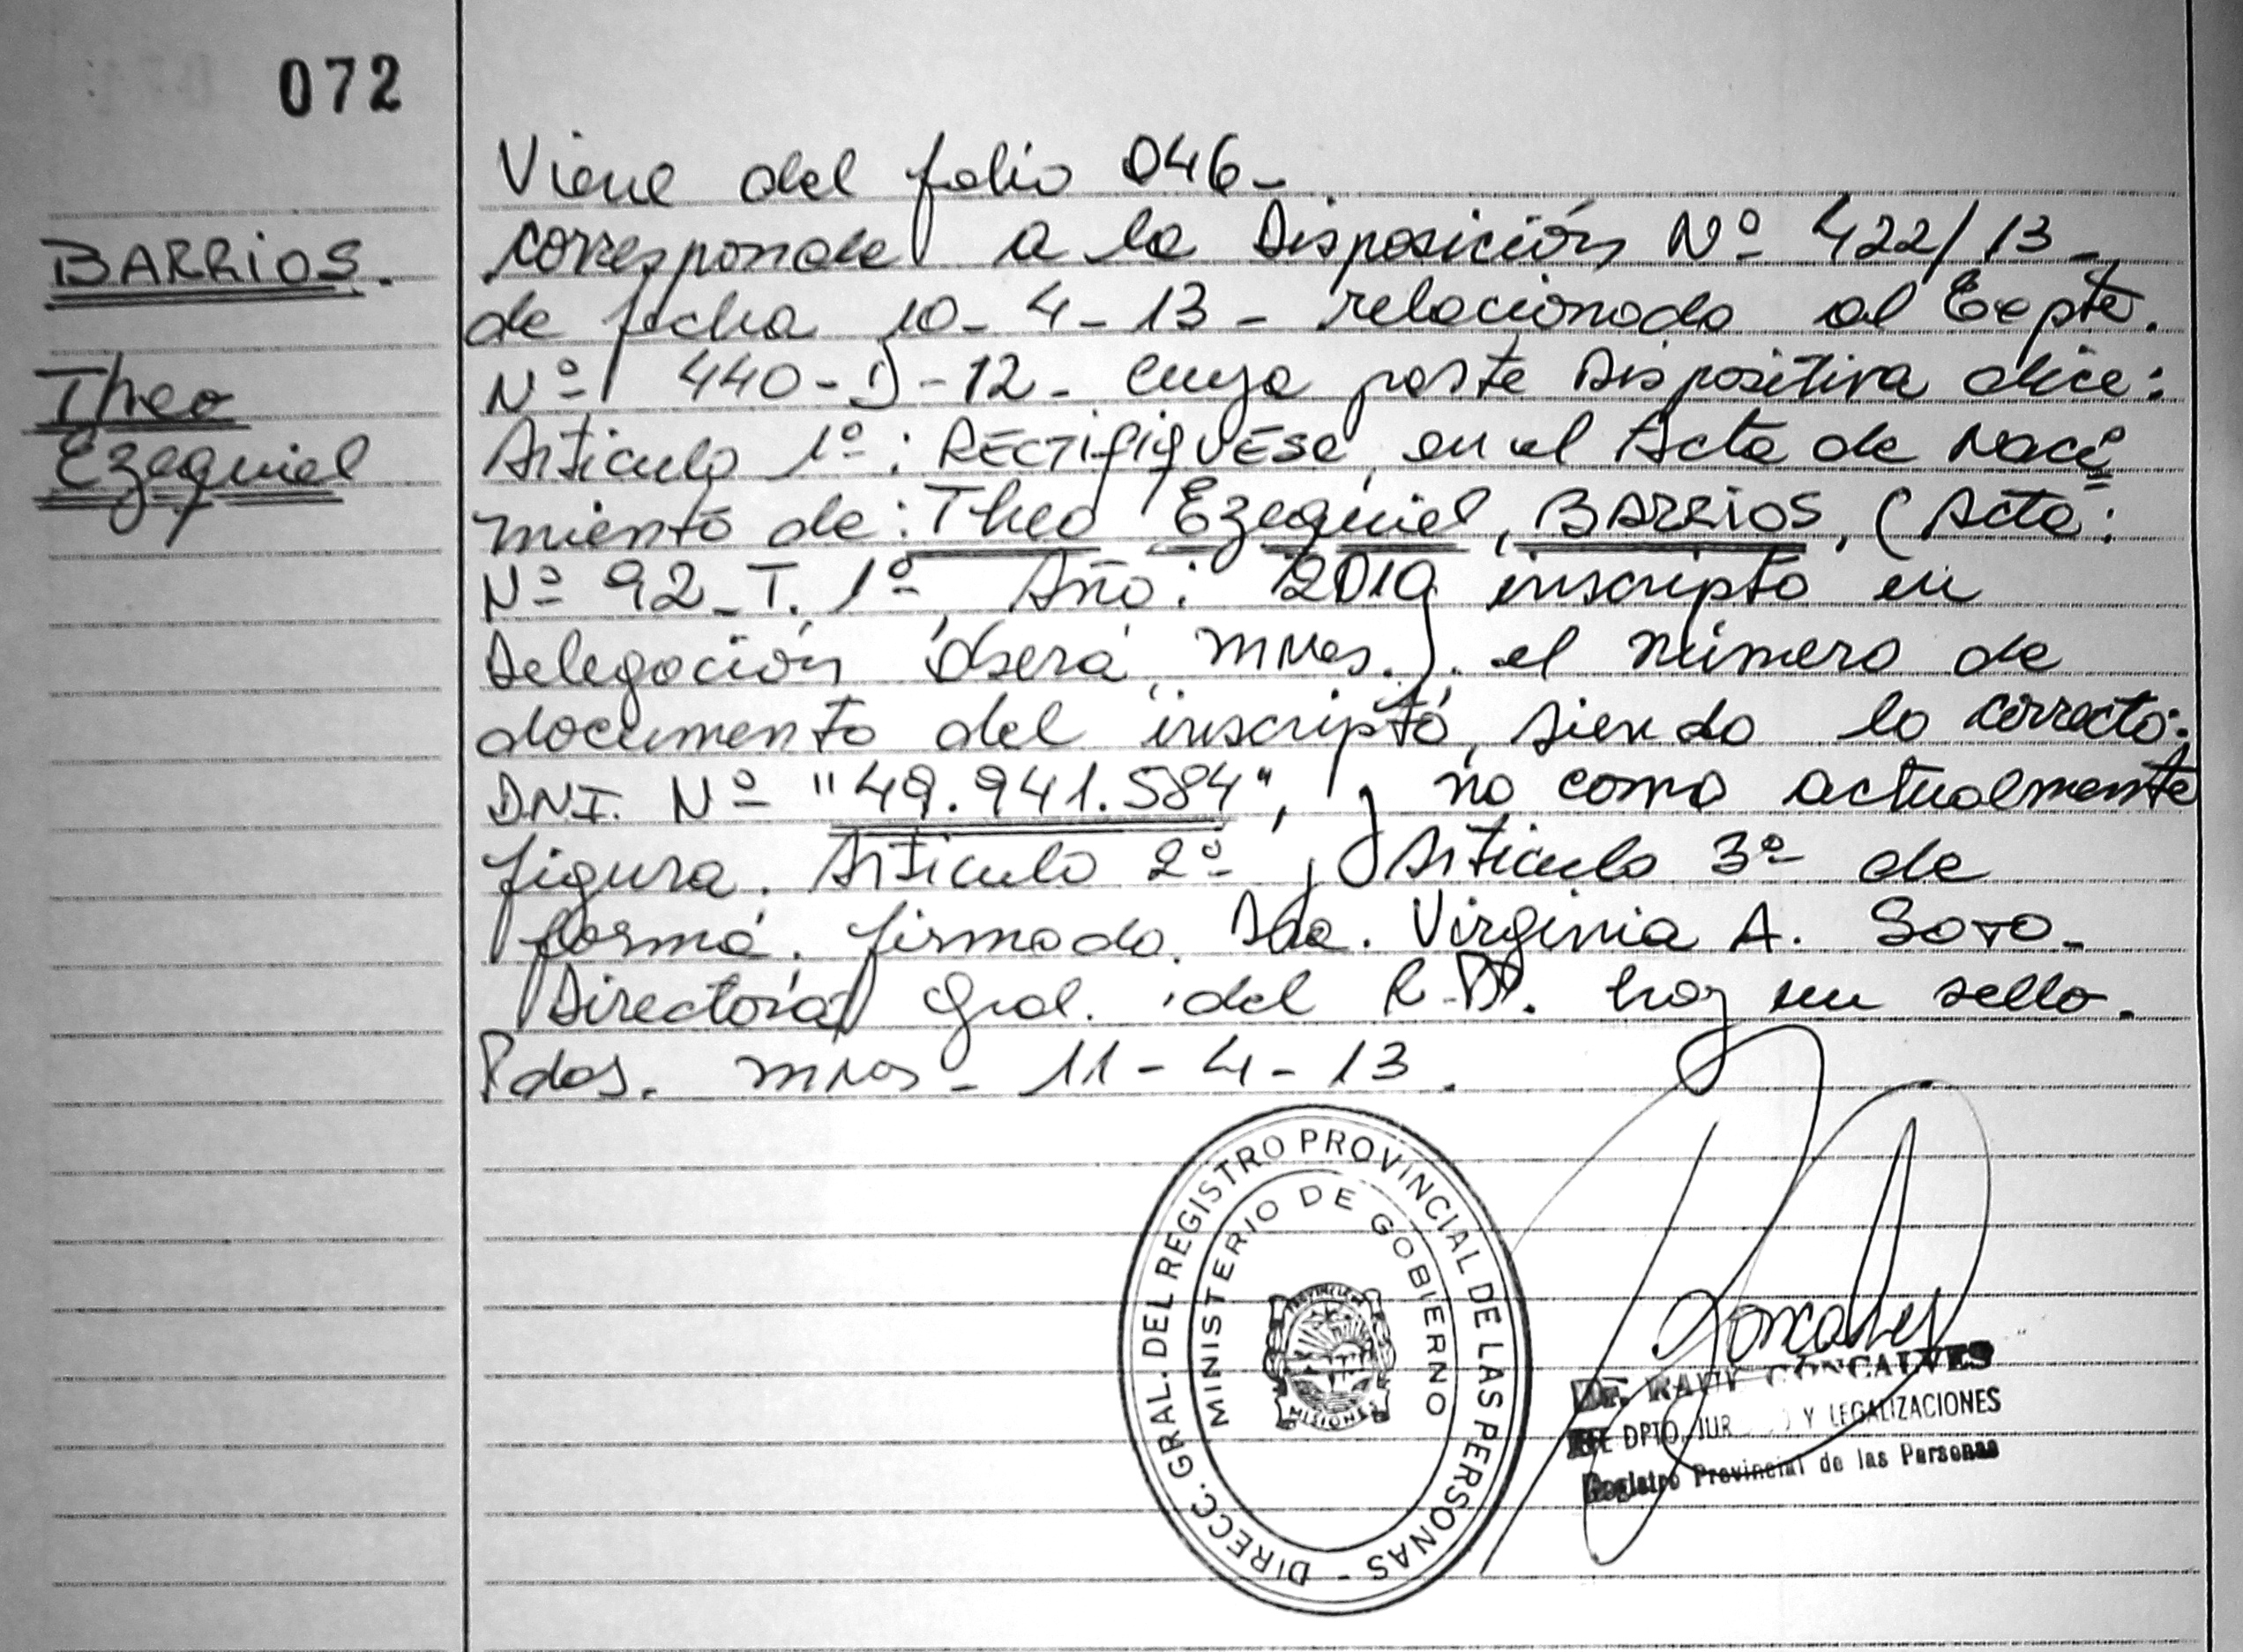 072
BARRIOS.
Theo
Ezequiel
Viene del folio 046-
corresponde a la Disposición Nº 422/13-
de fecha 10-4-13- relacionado al Expte.
Nº 440-D-12- cuya parte Dispositiva dice:
Articulo 1º: RECTIFIQUESE, en el Acta de Naci
miento de: Theo Ezequiel, BARRIOS, (Acta:
Nº 92-T. 1º, Año: 2010 inscripto en
Delegación Oberá, Mnes.). el número de
documento del inscripto, siendo lo correcto:
DNI. Nº "49.941.584", y no como actualmente
figura. Articulo 2º y Articulo 3º de
forma. firmado. Dra. Virginia A. Soto-
Directora Gral. del R.P.P. hay un sello.
Pdas. Mnes- 11-4-13.
DIRECC. GRAL. DEL REGISTRO PROVINCIAL DE LAS PERSONAS -
MINISTERIO DE GOBIERNO
PROVINCIA DE
MISIONES
Goncalves
Dr. GONCALVES
DPTO. Y LEGALIZACIONES
Registro Provincial de las Personas